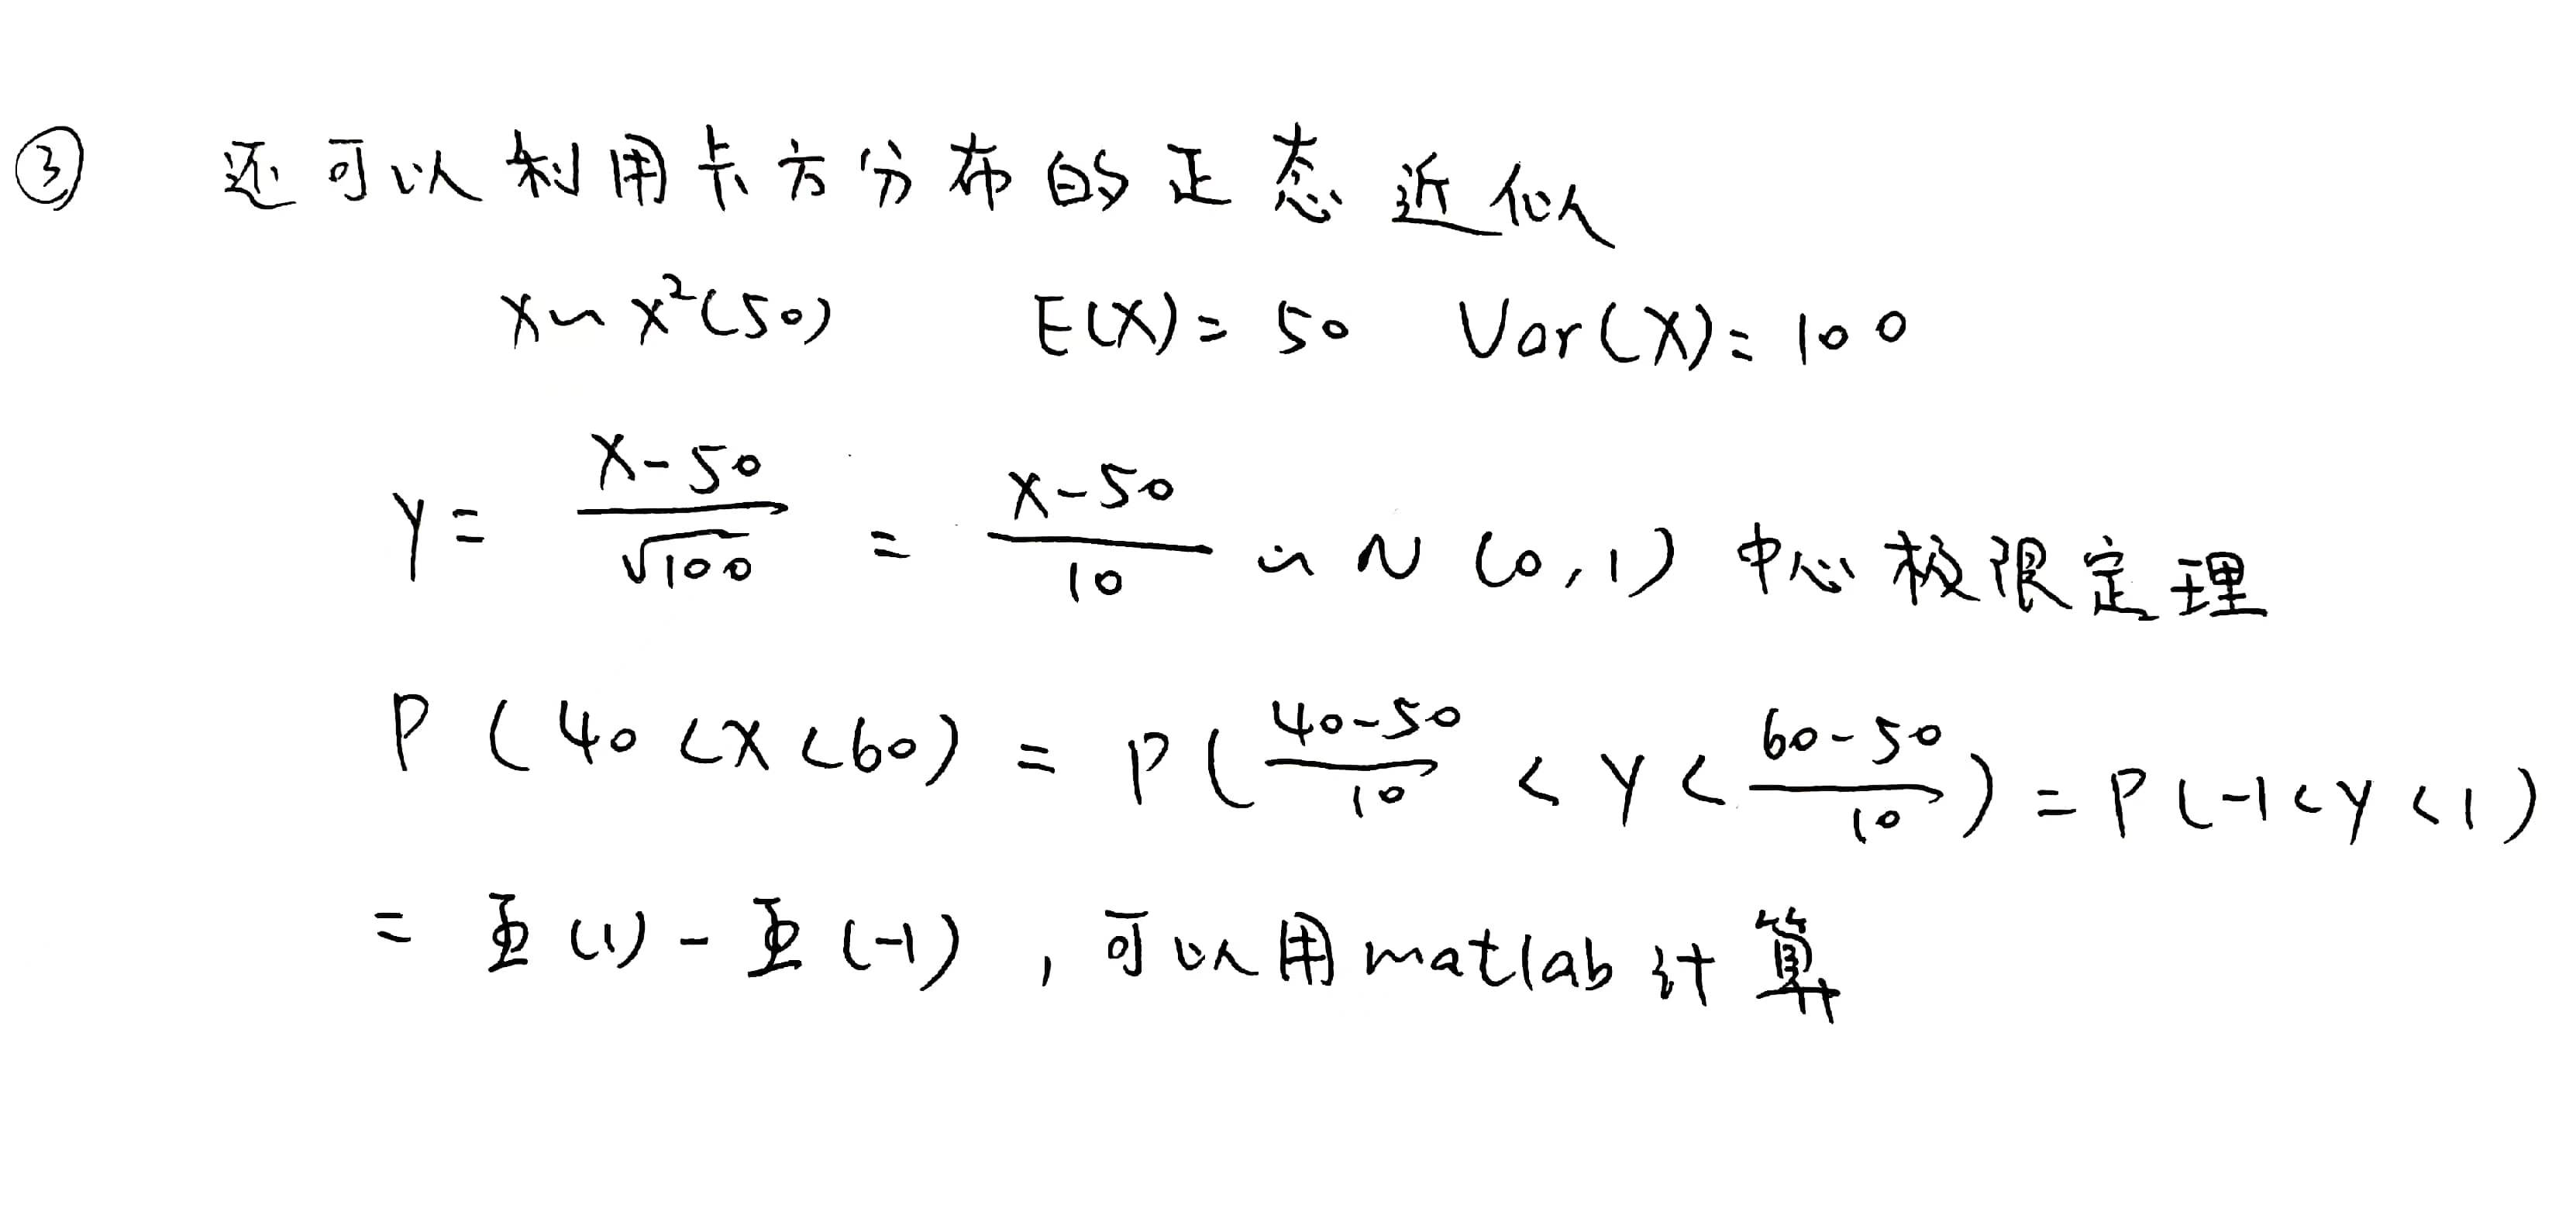 ③ 还可以利用卡方分布的正态近似
X~X²(50) E(X)=50 Var(X)=100
Y= (X-50)/√100 = (X-50)/10 ~ N(0,1) 中心极限定理
P(40<X<60) = P((40-50)/10 < Y < (60-50)/10) = P(-1<Y<1)
= Φ(1) - Φ(-1), 可以用matlab计算